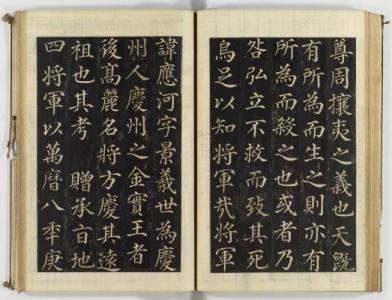 尊周攘夷之義也天旣
有所為而生之則亦有
所為而殺之也或者乃
咎弘立不救而致其死
烏足以知將軍哉將軍
諱應河字景羲世為慶
州人慶州之金實王者
後髙麗名將方慶其遠
祖也其考 贈承旨地
四將軍以萬曆八秊庚